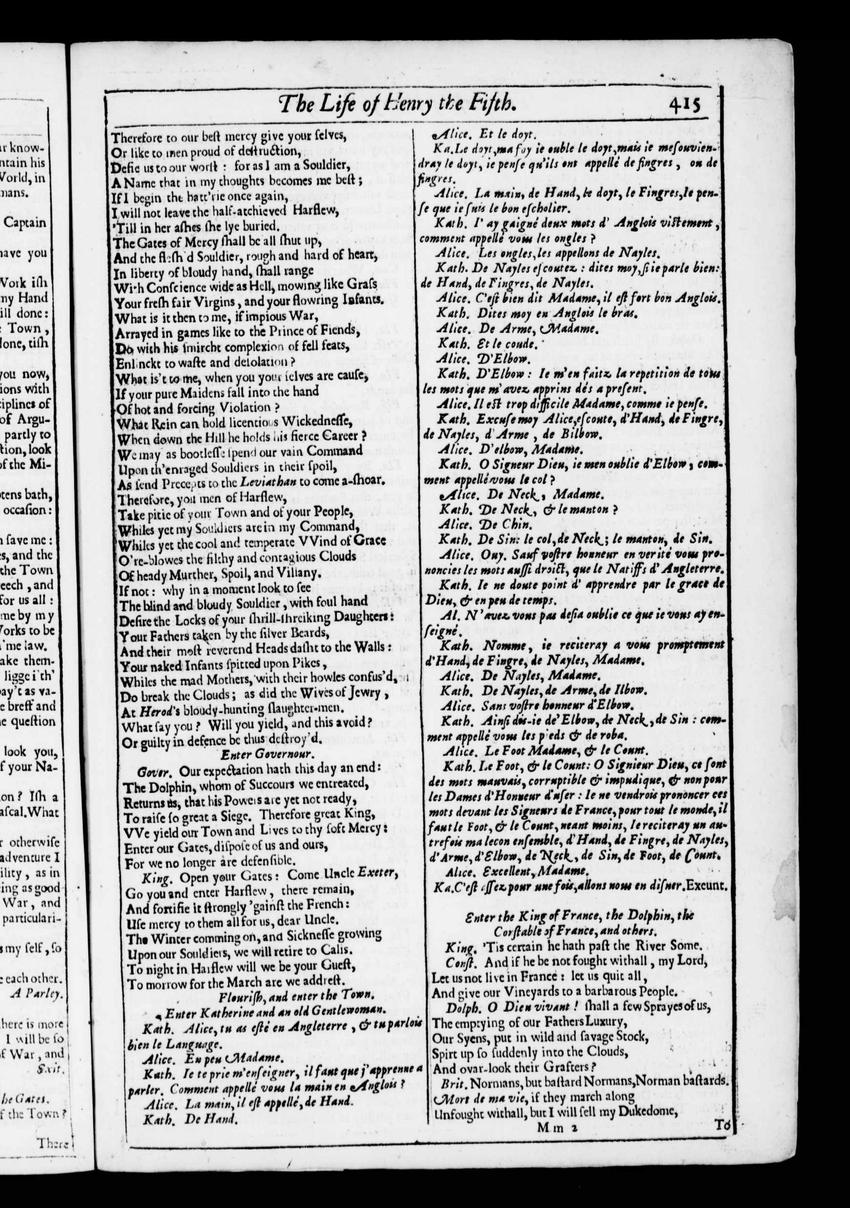 ur know-
ntain his
World, in
mans.
Captain
have you
Work ish
my Hand
ill done:
Town,
lone, tish
you now,
ions with
ciplines of
of Argu-
partly to
tion, look
of the Mi-
otens bath,
occasion:
save me:
es, and the
the Town
eech, and
for us all:
me by my
Works to be
'me law.
ake them-
ligge i'th'
pay't as va-
e breff and
e question
look you,
f your Na-
on? Ish a
ascal. What
otherwise
adventure I
ility, as in
ing as good
War, and
particulari-
s my self, so
e each other.
A Parley.
here is more
I will be so
of War, and
Exit.
he Gates.
f the Town?
There
The Life of Henry the Fifth. 415
Therefore to our best mercy give your selves,
Or like to men proud of destruction,
Defie us to our worst: for as I am a Souldier,
A Name that in my thoughts becomes me best;
If I begin the batt'rie once again,
I will not leave the half-atchieved Harflew,
'Till in her ashes she lye buried.
The Gates of Mercy shall be all shut up,
And the flesh'd Souldier, rough and hard of heart,
In liberty of bloody hand, shall range
With Conscience wide as Hell, mowing like Grass
Your fresh fair Virgins, and your flowring Infants.
What is it then to me, if impious War,
Arrayed in games like to the Prince of Fiends,
Do with his smircht complexion of fell feats,
Enlinckt to waste and desolation?
What is't to me, when you your selves are cause,
If your pure Maidens fall into the hand
Of hot and forcing Violation?
What Rein can hold licentious Wickednesse,
When down the Hill he holds his fierce Career?
We may as bootlesse spend our vain Command
Upon th'enraged Souldiers in their spoil,
As send Precepts to the Leviathan to come a-shoar.
Therefore, you men of Harflew,
Take pitie of your Town and of your People,
Whiles yet my Souldiers are in my Command,
Whiles yet the cool and temperate VVind of Grace
O're-blowes the filthy and contagious Clouds
Of heady Murther, Spoil, and Villany.
If not: why in a moment look to see
The blind and bloudy Souldier, with foul hand
Desire the Locks of your shrill-shreiking Daughters:
Your Fathers taken by the silver Beards,
And their most reverend Heads dasht to the Walls:
Your naked Infants spitted upon Pikes,
Whiles the mad Mothers, with their howles confus'd,
Do break the Clouds; as did the Wives of Jewry,
At Herod's bloudy-hunting slaughter-men.
What say you? Will you yield, and this avoid?
Or guilty in defence be thus destroy'd.
Enter Governour.
Gover. Our expectation hath this day an end:
The Dolphin, whom of Succours we entreated,
Returns us, that his Powers are yet not ready,
To raise so great a Siege. Therefore great King,
VVe yield our Town and Lives to thy soft Mercy:
Enter our Gates, dispose of us and ours,
For we no longer are defensible.
King. Open your Gates: Come Uncle Exeter,
Go you and enter Harflew, there remain,
And fortifie it strongly 'gainst the French:
Use mercy to them all for us, dear Uncle.
The Winter comming on, and Sicknesse growing
Upon our Souldiers, we will retire to Calis.
To night in Harflew will we be your Guest,
To morrow for the March are we addrest.
Flourish, and enter the Town.
Enter Katherine and an old Gentlewoman.
Kath. Alice, tu as esté en Angleterre, & tu parlois
bien le Language.
Alice. En peu Madame.
Kath. Ie te prie m'enseigner, il faut que j'apprenne a
parler. Comment appellé vous la main en Anglois?
Alice. La main, il est appellé, de Hand.
Kath. De Hand.
Alice. Et le doyt.
Ka. Le doyt, ma foy ie ouble le doyt, mais ie mesouvien-
dray le doyt, ie pense qu'ils ont appellé de fingres, ou de
fingres.
Alice. La main, de Hand, le doyt, le Fingres, le pen-
se que ie suis le bon escholier.
Kath. I' ay gaigné deux mots d' Anglois vistement,
comment appellé vous les ongles?
Alice. Les ongles, les appellons de Nayles.
Kath. De Nayles escoutez: dites moy, si ie parle bien:
de Hand, de Fingres, de Nayles.
Alice. C'est bien dit Madame, il est fort bon Anglois.
Kath. Dites moy en Anglois le bras.
Alice. De Arme, Madame.
Kath. Et le coude.
Alice. D'Elbow.
Kath. D'Elbow: Ie m'en faitz la repetition de tous
les mots que m'avez apprins dés a present.
Alice. Il est trop difficile Madame, comme ie pense.
Kath. Excuse moy Alice, escoute, d'Hand, de Fingre,
de Nayles, d'Arme, de Bilbow.
Alice. D'elbow, Madame.
Kath. O Signeur Dieu, ie men oublie d'Elbow, com-
ment appellé vous le col?
Alice. De Neck, Madame.
Kath. De Neck, & le manton?
Alice. De Chin.
Kath. De Sin: le col, de Neck; le manton, de Sin.
Alice. Ouy. Sauf vostre honneur en verité vous pro-
noncies les mots aussi droict, que le Natiffs d'Angleterre.
Kath. Ie ne doute point d' apprendre par le grace de
Dieu, & en peu de temps.
Al. N'avez vous pas desia oublie ce que ie vous ay en-
seigné.
Kath. Nomme, ie reciteray a vous promptement
d'Hand, de Fingre, de Nayles, Madame.
Alice. De Nayles, Madame.
Kath. De Nayles, de Arme, de Ilbow.
Alice. Sans vostre honneur d'Elbow.
Kath. Ainsi dis-ie de'Elbow, de Neck, de Sin: com-
ment appellé vous les pieds & de roba.
Alice. Le Foot Madame, & le Count.
Kath. Le Foot, & le Count: O Signieur Dieu, ce sont
des mots mauvais, corruptible & impudique, & non pour
les Dames d'Honneur d'user: le ne vendrois prononcer ces
mots devant les Signeurs de France, pour tout le monde, il
faut le Foot, & le Count, neant moins, le reciteray un au-
trefois ma lecon ensemble, d'Hand, de Fingre, de Nayles,
d'Arme, d'Elbow, de Neck, de Sin, de Foot, de Count.
Alice. Excellent, Madame.
Ka. C'est assez pour une fois, allons nous en disner. Exeunt.
Enter the King of France, the Dolphin, the
Constable of France, and others.
King. 'Tis certain he hath past the River Some.
Const. And if he be not fought withall, my Lord,
Let us not live in France: let us quit all,
And give our Vineyards to a barbarous People.
Dolph. O Dieu vivant! shall a few Sprayes of us,
The emptying of our Fathers Luxury,
Our Syens, put in wild and savage Stock,
Spirt up so suddenly into the Clouds,
And over-look their Grafters?
Brit. Normans, but bastard Normans, Norman bastards.
Mort de ma vie, if they march along
Unfought withall, but I will sell my Dukedome,
M m 2 To